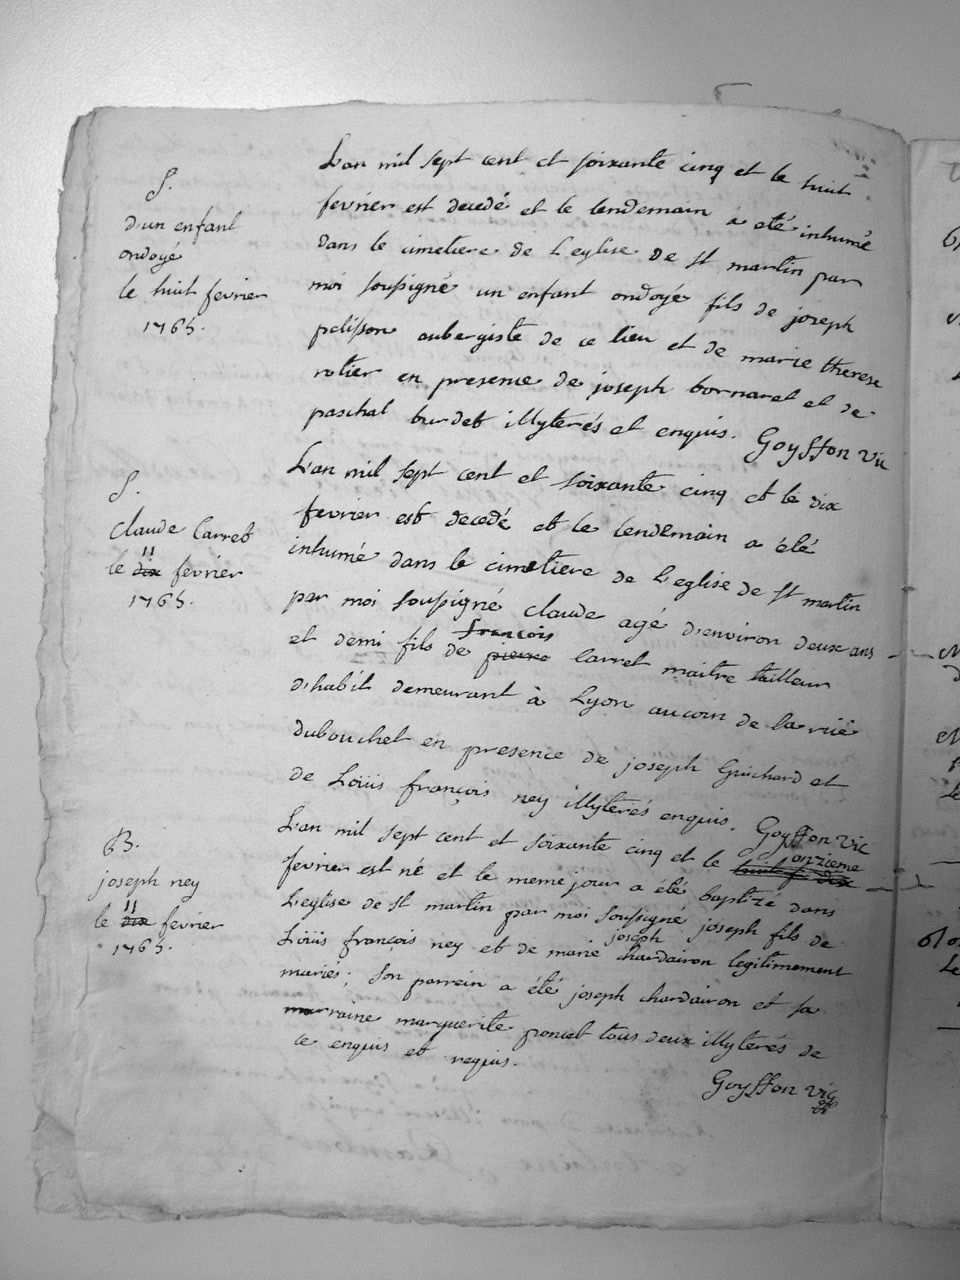 S.
d'un enfant
ondoyé
le huit fevrier
1765.
L'an mil sept cent et soixante cinq et le huit
fevrier est decedé et le lendemain a eté inhumé
dans le cimetiere de L'eglise de St martin par
moi soussigné un enfant ondoyé fils de joseph
pelisson aubergiste de ce lieu et de marie therese
rotier en presence de joseph bornaret et de
paschal burdet illyterés et enquis. Goyffon vic
S.
Claude Carret
le dix 11 fevrier
1765.
L'an mil sept cent et soixante cinq et le dix
fevrier est decedé et le lendemain a été
inhumé dans le cimetiere de L'eglise de St martin
par moi soussigné claude agé d'environ deux ans
et demi fils de pierre françois Carret maitre tailleur
d'habit demeurant à Lyon au coin de la rüe
dubouchet en presence de joseph Guichard et
de Loüis françois ney illyterés enquis. Goyffon vic
B.
joseph ney
le dix 11 fevrier
1765.
L'an mil sept cent et soixante cinq et le onzieme
fevrier est né et le meme jour a été baptizé dans
L'eglise de St martin par moi soussigné joseph fils de
Loüis françois ney et de marie joseph chardairon legitimement
mariés; son parrein a été joseph chardairon et sa
marraine marguerite poncet tous deux illyterés de
ce enquis et requis.
Goyffon vic